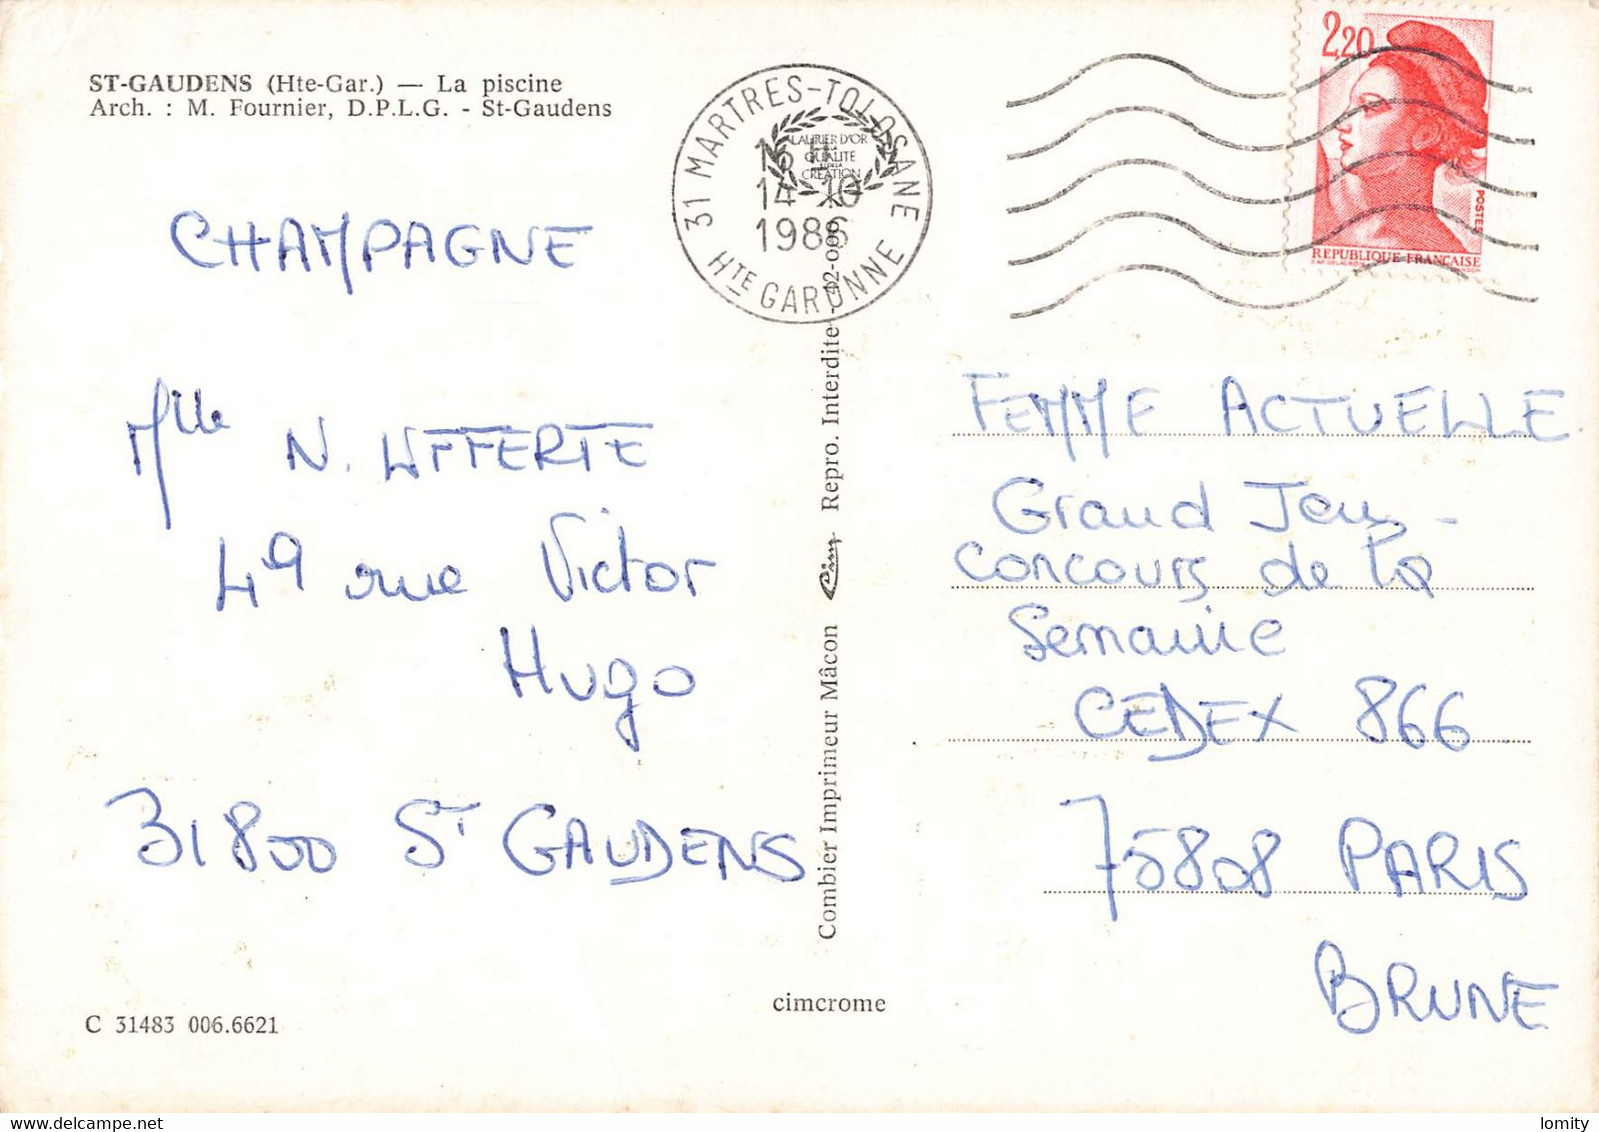 ST-GAUDENS (Hte-Gar.) — La piscine
Arch. : M. Fournier, D.P.L.G. - St-Gaudens
31 MARTRES-TOLOSANE
HTE GARONNE
14-10
1986
LAURIER D'OR
QUALITE
CREATION
2,20
POSTES
REPUBLIQUE FRANÇAISE
CHAMPAGNE
Mlle N. LAFFERTE
49 rue Victor
Hugo
31800 ST GAUDENS
Combier Imprimeur Mâcon Cim Repro. Interdite
FEMME ACTUELLE
Grand Jeu -
Concours de la
Semaine
CEDEX 866
75808 PARIS
BRUNE
C 31483 006.6621
cimcrome
lomity